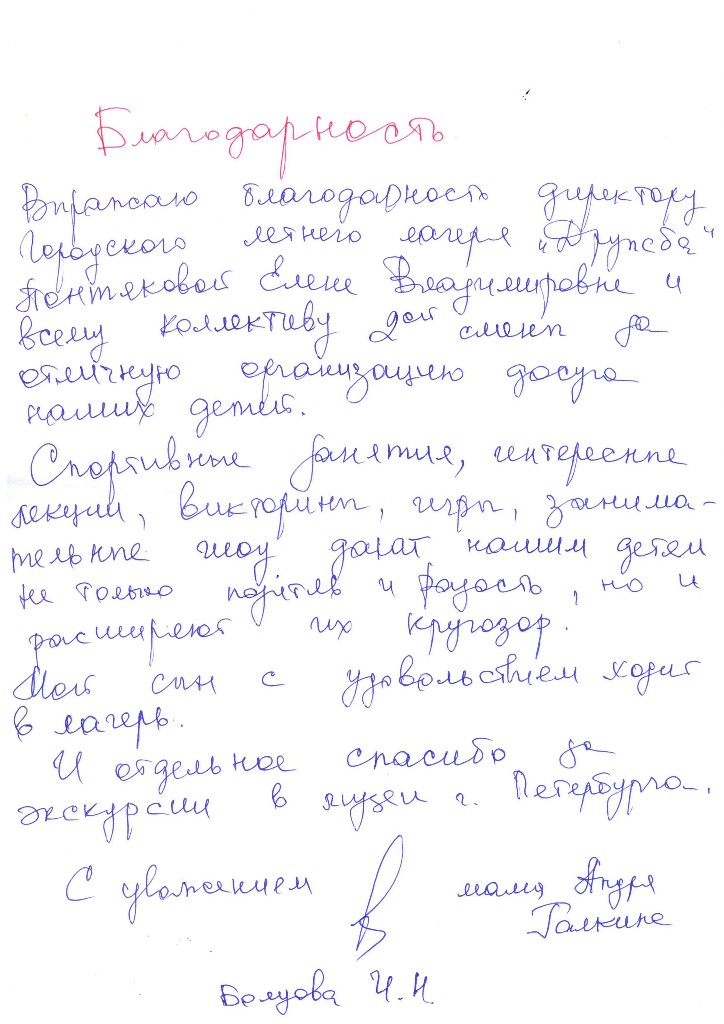 Благодарность
Выражаю благодарность директору
Городского летнего лагеря „Дружба“
Пентяковой Елене Владимировне и
всему коллективу 2ой смены за
отличную организацию досуга
наших детей.
Спортивные занятия, интересные
лекции, викторины, игры, занима-
тельные шоу дарят нашим детям
не только позитив и радость, но и
расширяют их кругозор.
Мой сын с удовольствием ходит
в лагерь.
И отдельное спасибо за
экскурсии в музеи г. Петербурга.
С уважением мама Андрея
Галкина
Белуова И.Н